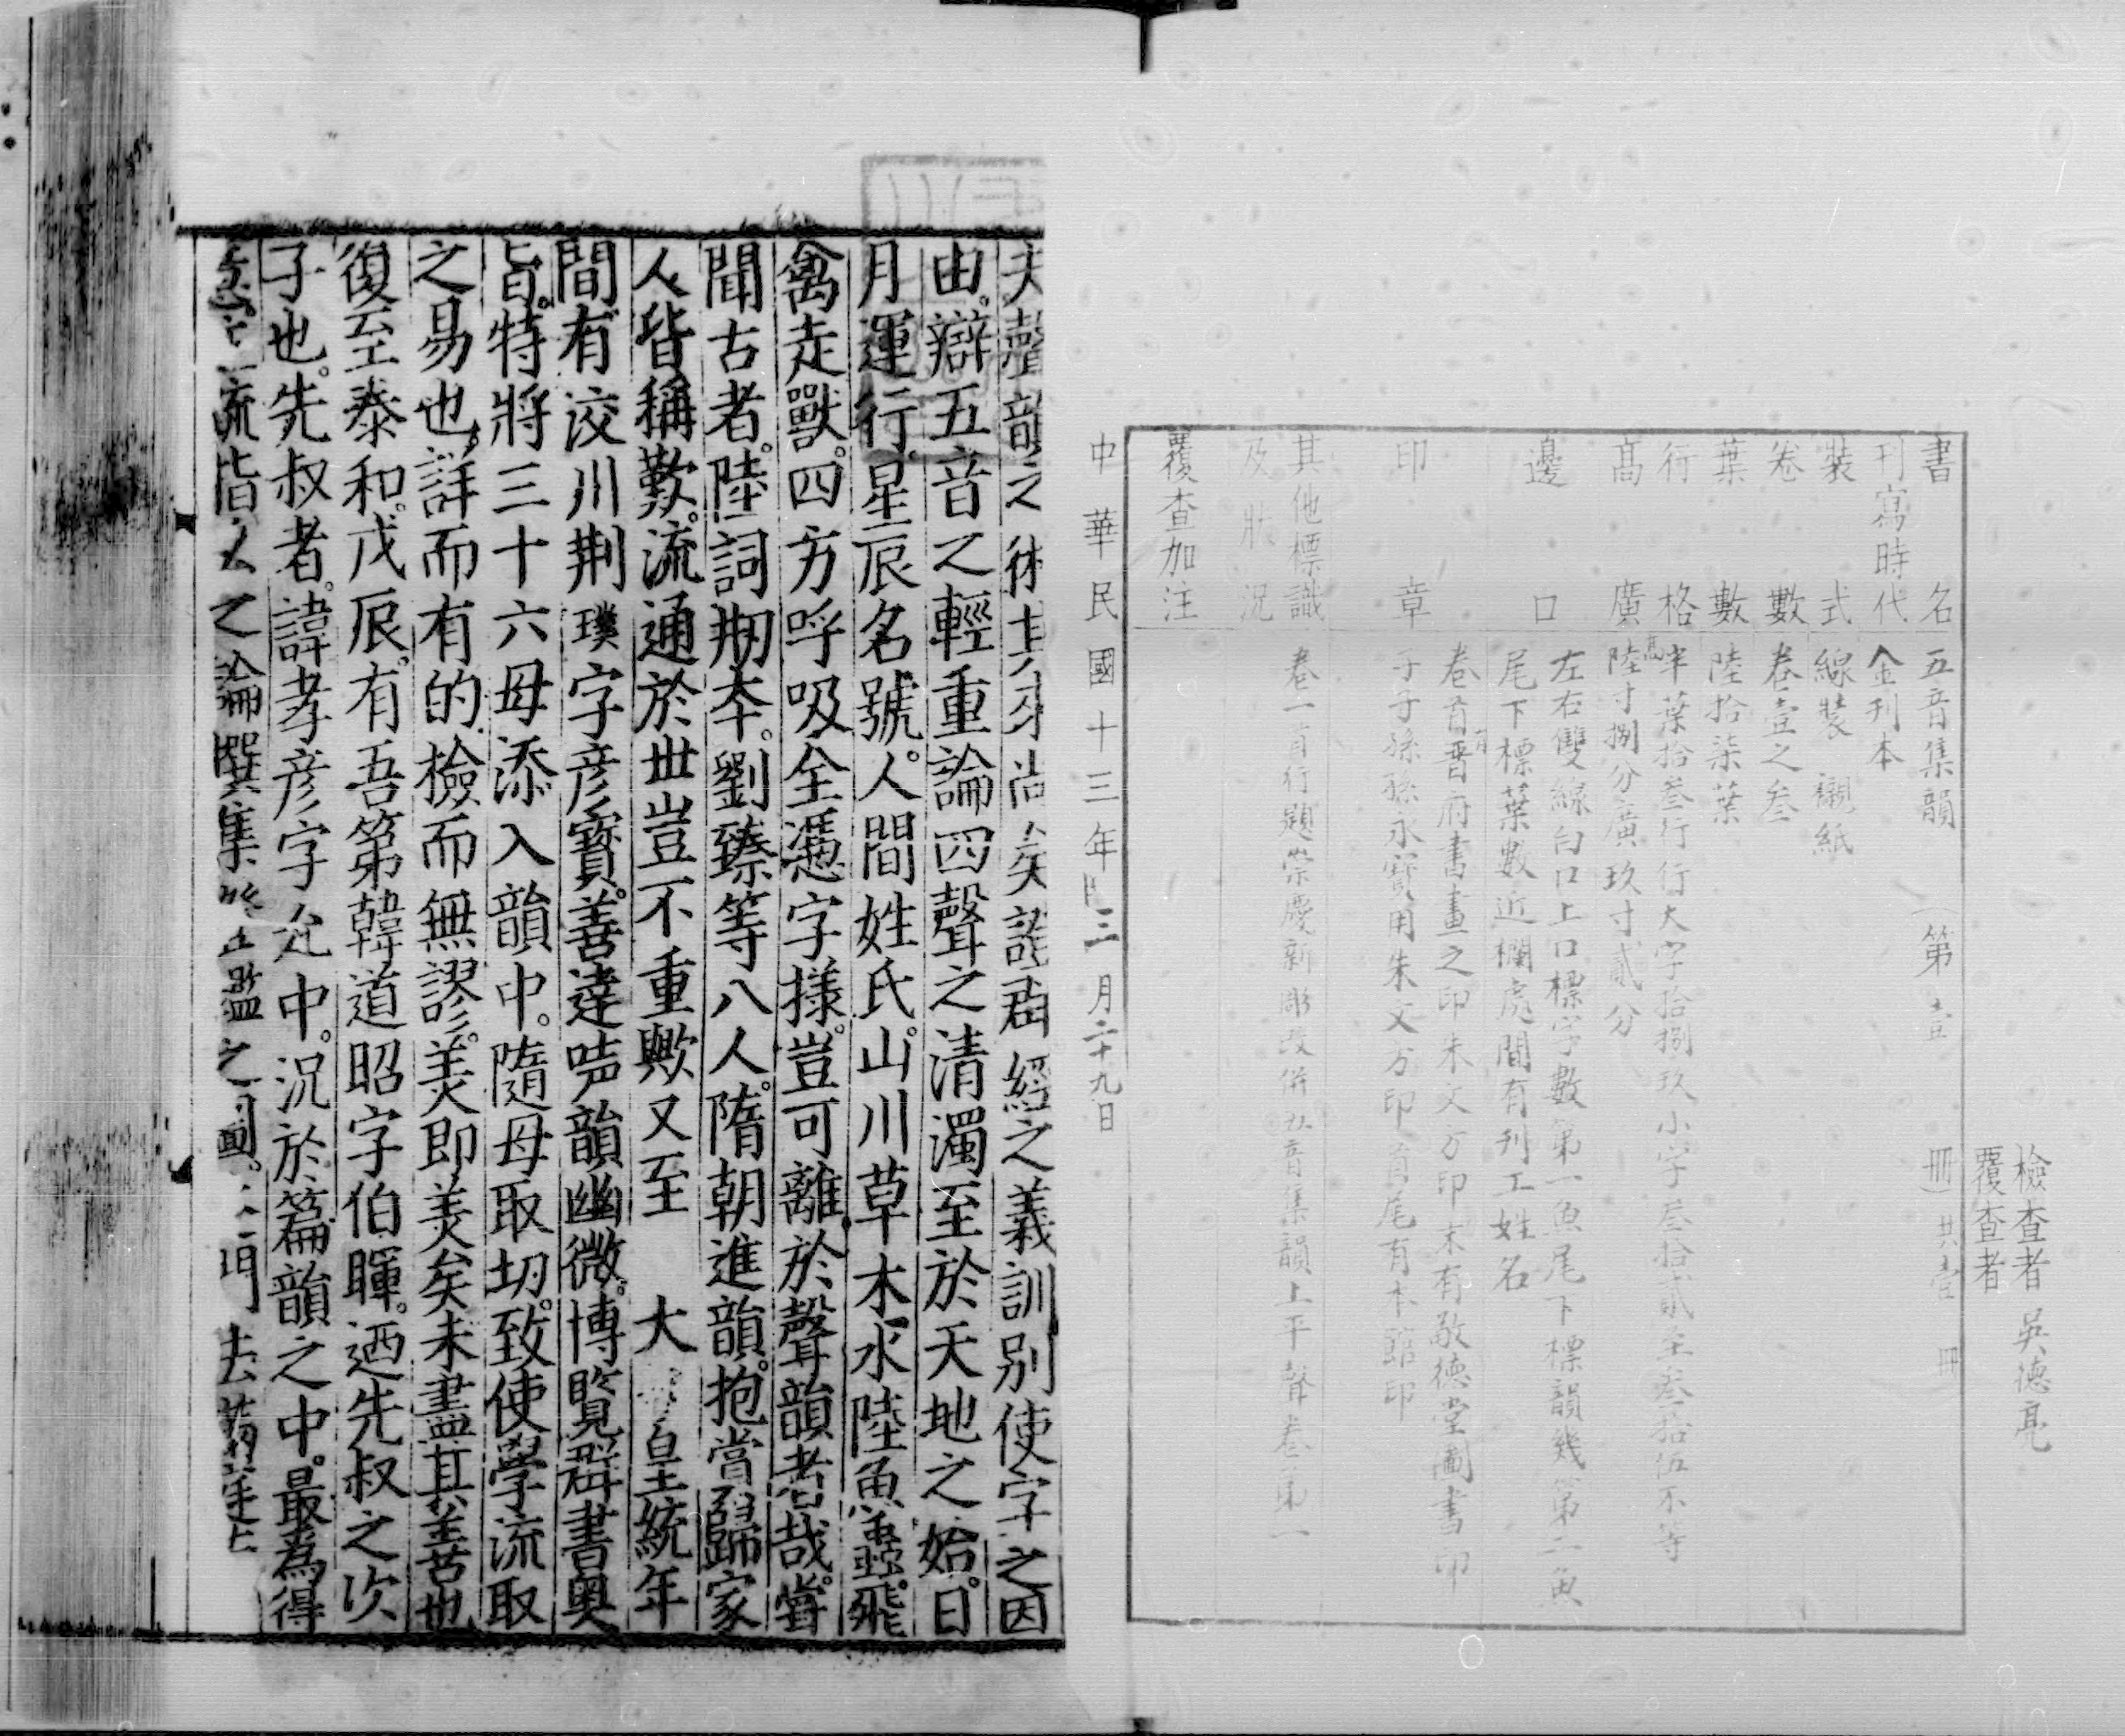 檢查者 吳德亮
覆查者
書名 五音集韻 (第壹冊)共壹冊
刊寫時代 金刊本
裝式 線裝 襯紙
卷數 卷壹之叁
葉數 陸拾柒葉
行格 半葉拾叁行行大字拾捌玖小字叁拾貳至叁拾伍不等
高廣 高陸寸捌分廣玖寸貳分
邊口 左右雙線白口上口標字數第一魚尾下標韻幾第二魚
尾下標葉數近欄處間有刊工姓名
印章 卷首晋府書畫之印朱文方印末有敬德堂圖書印
子子孫孫永寶用朱文方印首尾有本館印
其他標識及狀況 卷一首行題崇慶新彫改併五音集韻上平聲卷第一
覆查加注
中華民國十三年三月二十九日
夫聲韻之術其來尚矣 經之義訓別使字之因
由。辯五音之輕重論四聲之清濁至於天地之始。日
月運行。星辰名號。人間姓氏。山川草木。水陸魚蟲。飛
禽走獸。四方呼吸全憑字樣。豈可離於聲韻者哉。嘗
聞古者。陸詞刱本。劉臻等八人。隋朝進韻。抱賞歸家
人皆稱歎。流通於世豈不重歟又至 大 皇統年
間有洨川荆璞字彥寶。善達聲韻幽微。博覽群書奧
旨。特將三十六母添入韻中。隨母取切。致使學流取
之易也。詳而有的。檢而無謬。美即美矣未盡其善也
復至泰和。戊辰。有吾弟韓道昭字伯暉。迺先叔之次
子也。先叔者。諱孝彥字允中。況於篇韻之中。最為得
流皆 之論 集 之